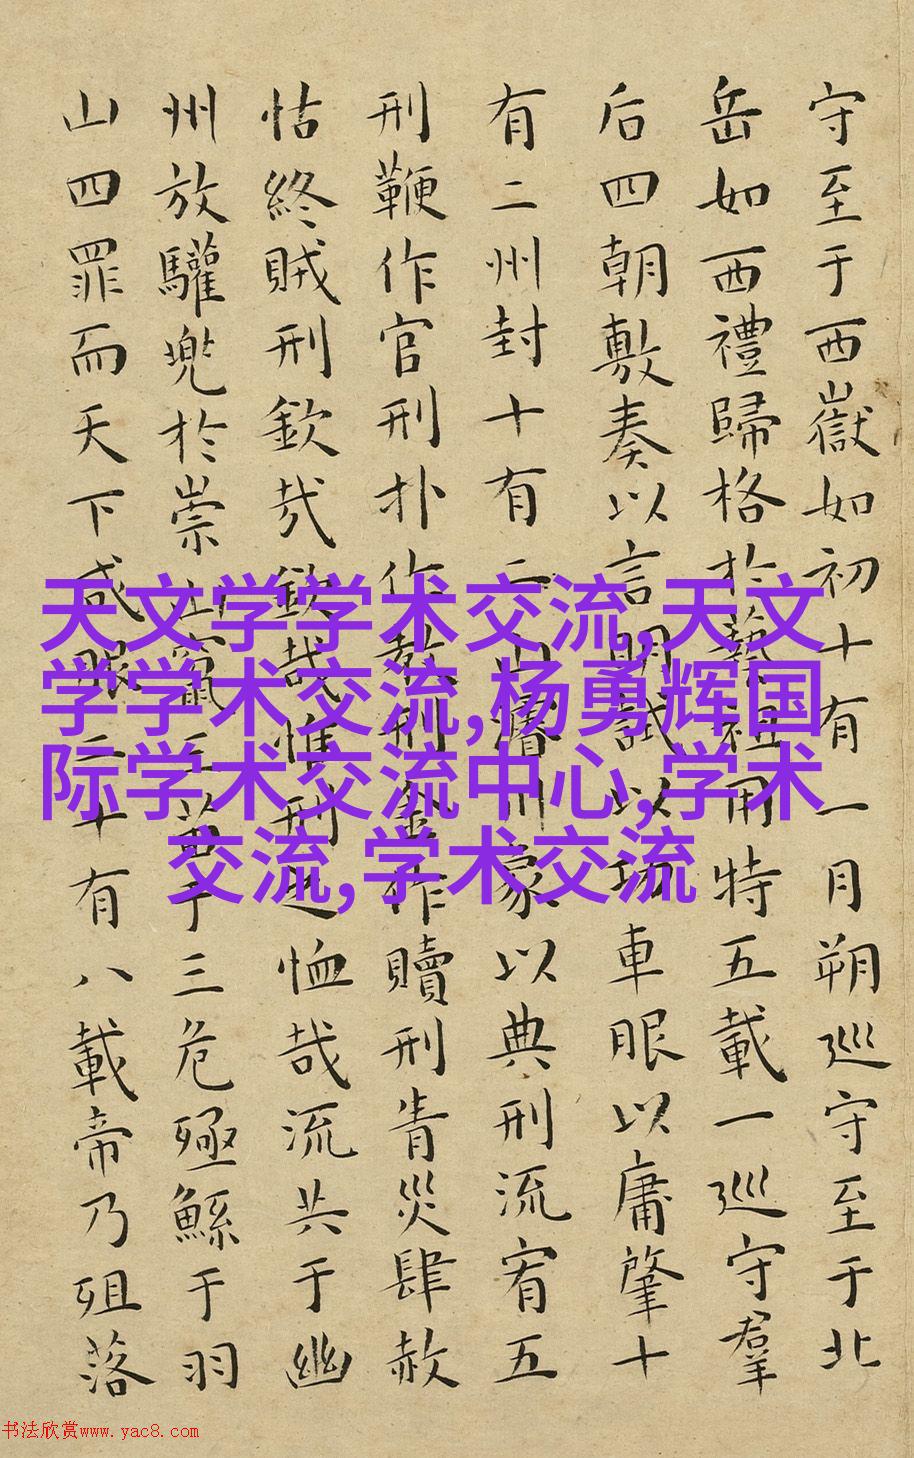 守至于西嶽如初十有一月朔巡守至于北
岳如西禮歸格於藝祖用特五載一巡守羣
后四朝敷奏以言明試以功車服以庸肇十
有二州封十有二山濬川象以典刑流宥五
刑鞭作官刑扑作教刑金作贖刑眚災肆赦
怙終賊刑欽哉欽哉惟刑之恤哉流共于幽
州放驩兜於崇山竄三苗于三危殛鯀于羽
山四罪而天下咸服二十有八載帝乃殂落
天文学学术交流,天文
学学术交流,杨勇辉国
际学术交流中心,学术
交流,学术交流
书法欣赏www.yac8.com